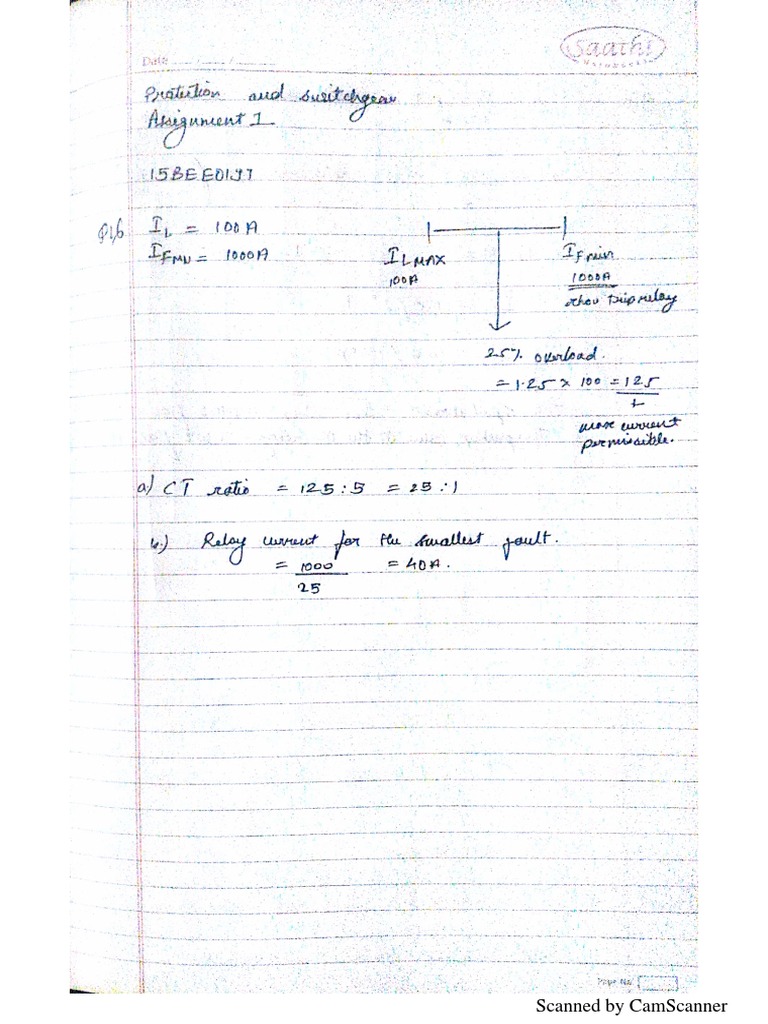 Saathi
Date ..../..../....
Protection and switchgear
Assignment 1
15BEE0197
Q1,b I_L = 100A
I_FMIN = 1000A
I_L MAX
100A
I_F min
1000A
relay
25% overload.
= 1.25 x 100 = 125
max current
permissible.
a) CT ratio = 125:5 = 25:1
b.) Relay current for the smallest fault.
= 1000 = 40A.
25
Page No.
Scanned by CamScanner